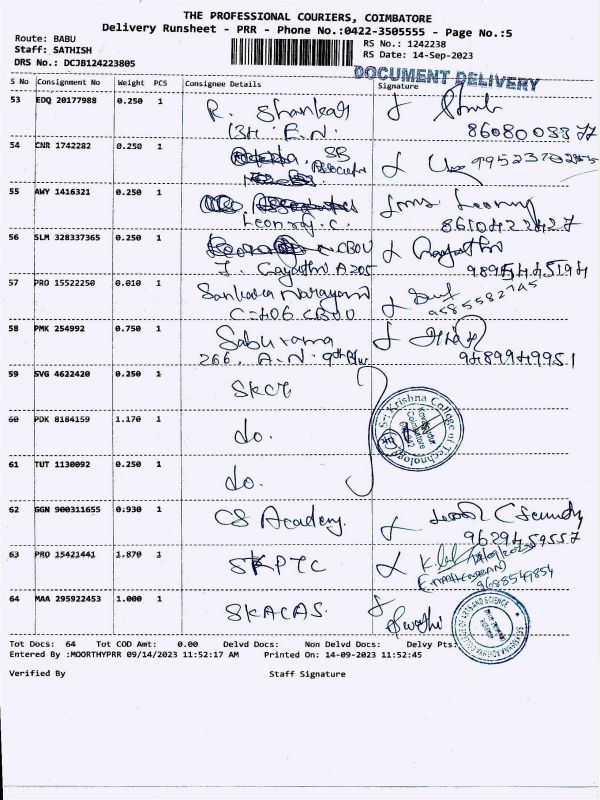 THE PROFESSIONAL COURIERS, COIMBATORE
Delivery Runsheet - PRR - Phone No.:0422-3505555 - Page No.:5
Route: BABU
Staff: SATHISH
DRS No.: DCJB124223805
RS No.: 1242238
RS Date: 14-Sep-2023
DOCUMENT DELIVERY
S No Consignment No Weight PCS Consignee Details Signature
53 EDQ 20177988 0.250 1 R. Shankar
54 CNR 1742282 0.250 1 SB
Associates
55 AWY 1416321 0.250 1
Leonraj. C.
8610422427
56 SLM 328337365 0.250 1 CBOU
J. Gayathri A205 Gayathri
57 PRO 15522250 0.010 1 Sankara Narayanan
C-406 CBOU
58 PMK 254992 0.750 1 Saburama
266. A.N. 9th
9489949951
59 SVG 4622420 0.250 1 SKCT
60 PDK 8184159 1.170 1 do.
Sri Krishna College of Technology
Coimbatore
61 TUT 1130092 0.250 1 do.
62 GGN 900311655 0.930 1 CS Academy.
9629459557
63 PRO 15421441 1.870 1 SKPTC
9688549854
64 MAA 295922453 1.000 1 SKACAS. Swathi
COLLEGE OF ARTS AND SCIENCE
Tot Docs: 64 Tot COD Amt: 0.00 Delvd Docs: Non Delvd Docs: Delvy Pts:
Entered By :MOORTHYPRR 09/14/2023 11:52:17 AM Printed On: 14-09-2023 11:52:45
Verified By Staff Signature